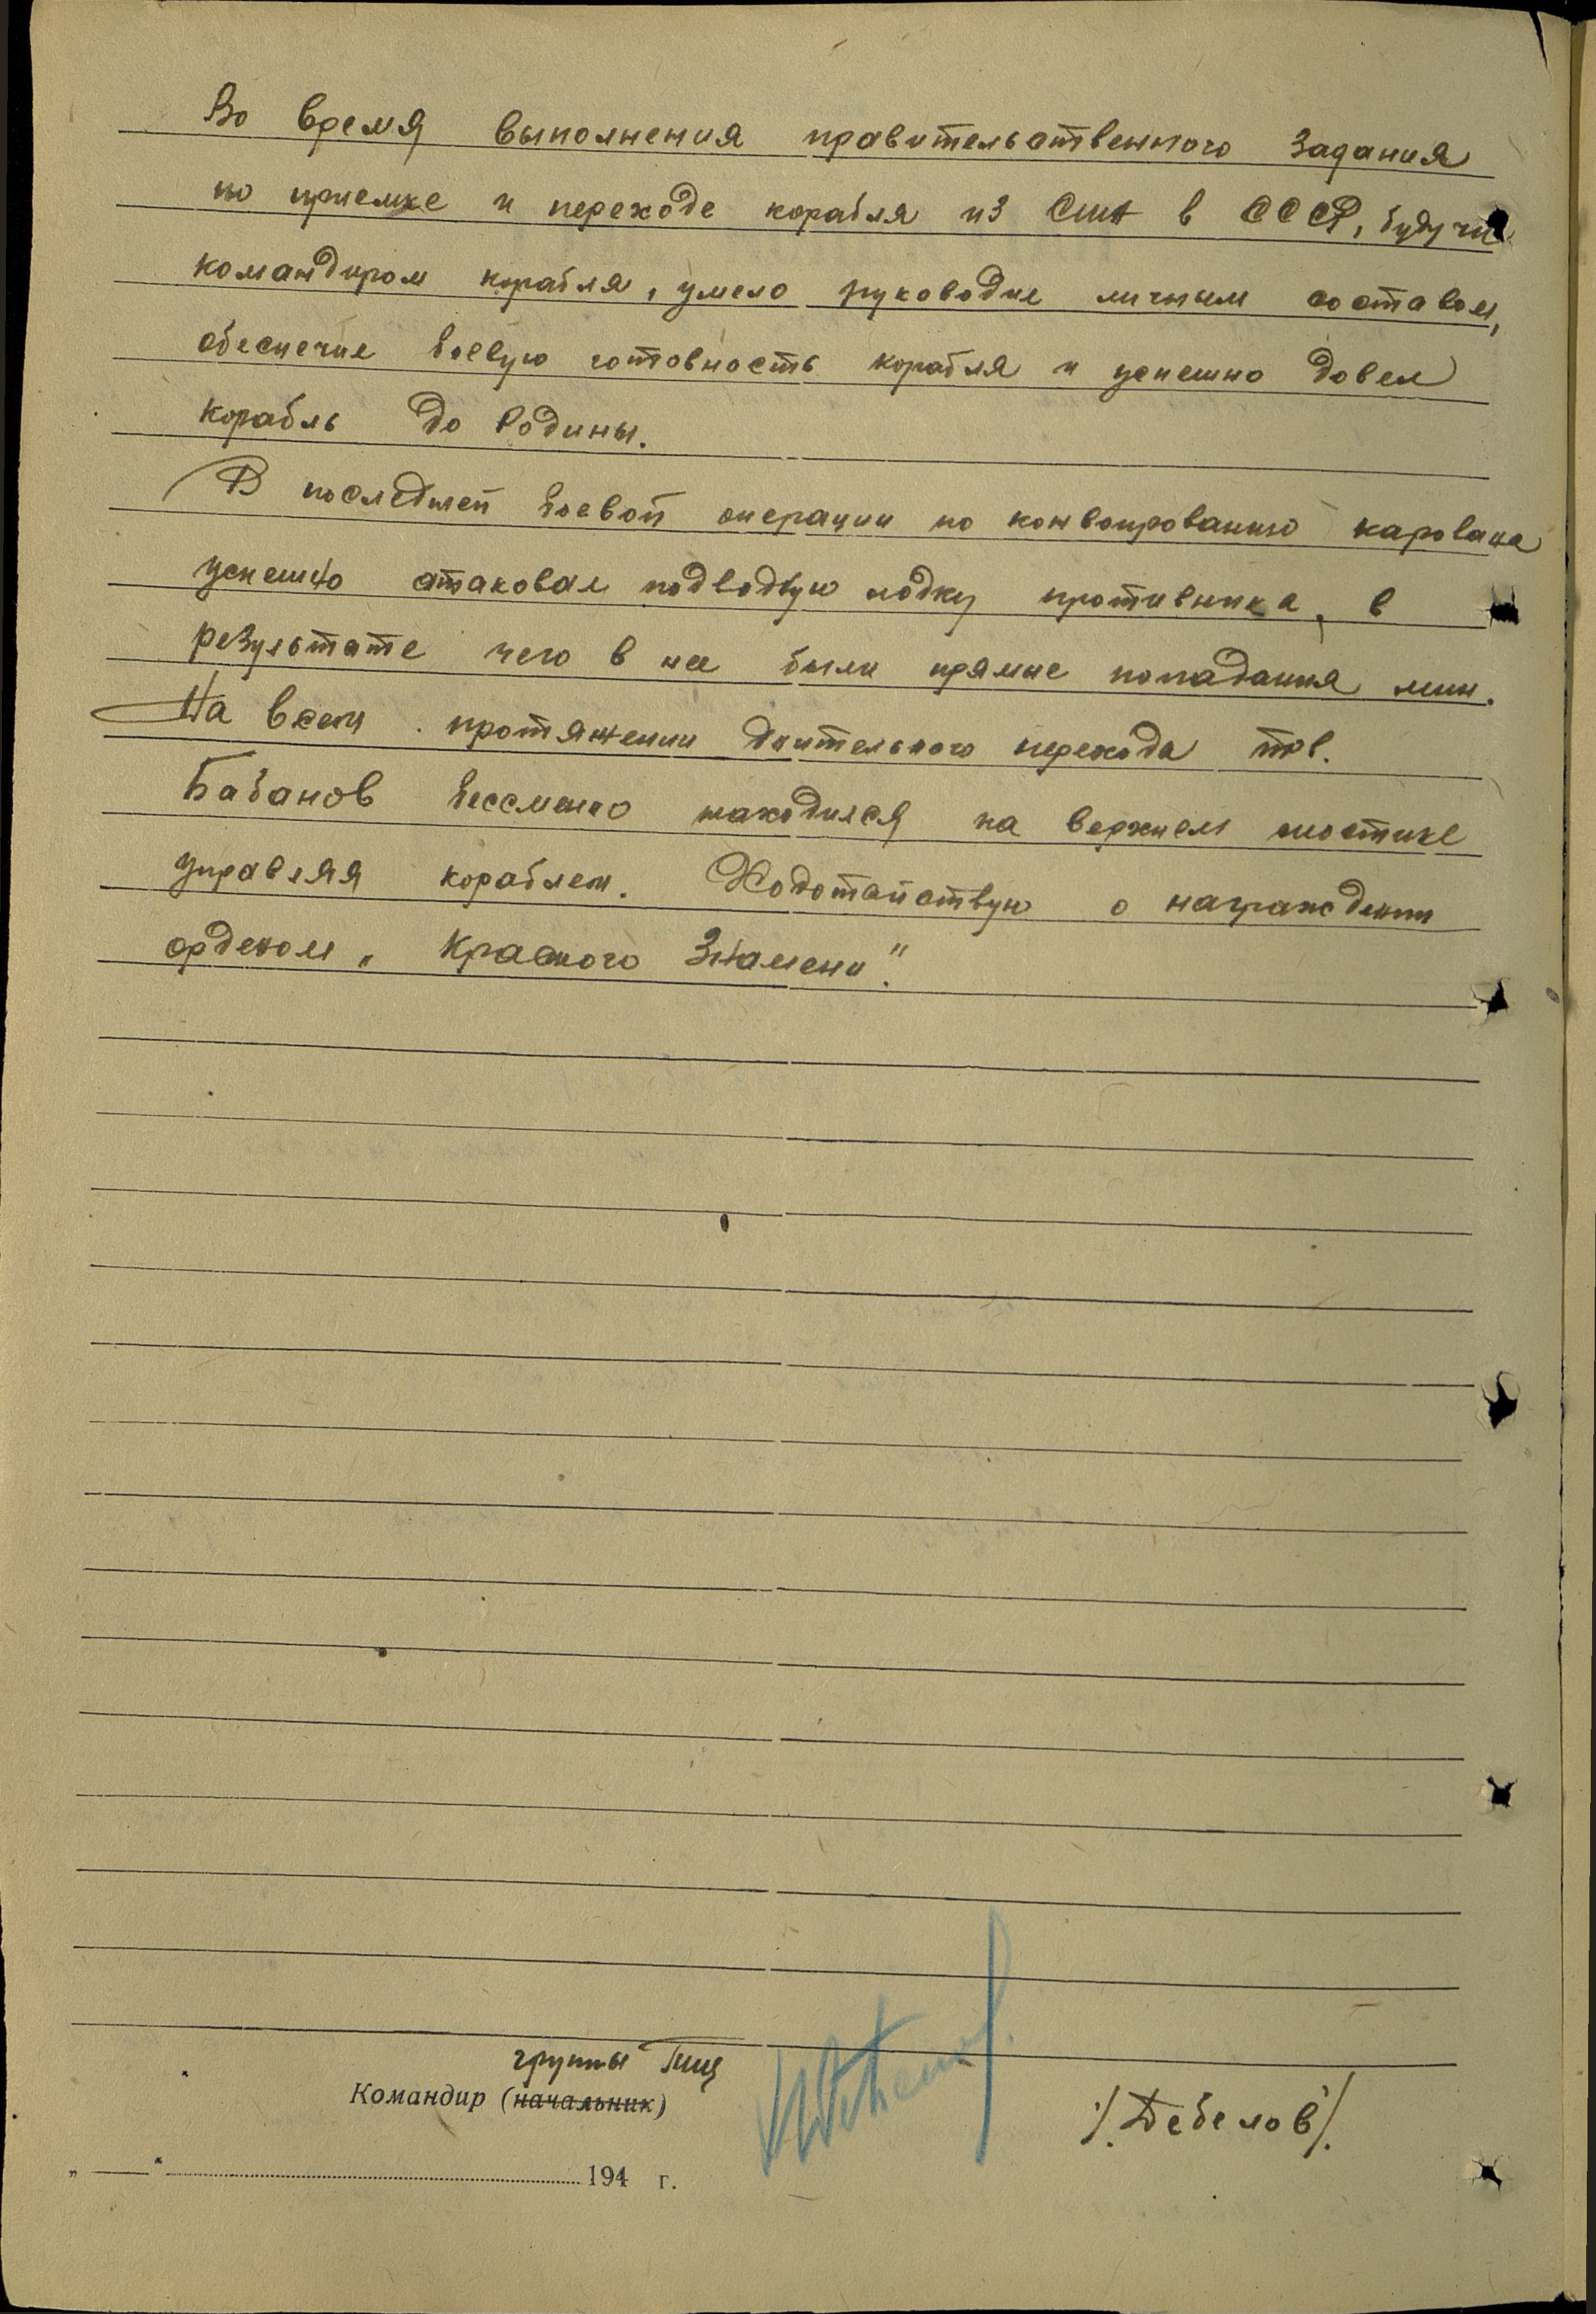 Во время выполнения правительственного задания
по приемке и переходе корабля из США в СССР, будучи
командиром корабля, умело руководил личным составом,
обеспечил боевую готовность корабля и успешно довел
корабль до Родины.
В последней боевой операции по конвоированию каравана
успешно атаковал подводную лодку противника, в
результате чего в нее были прямые попадания мин.
На всем протяжении длительного перехода тов.
Бабанов бессменно находился на верхнем мостике
управляя кораблем. Ходотайствую о награждении
орденом „Красного Знамени".
группы Тщ
Командир (начальник)
/Дебелов/.
„ “ 194 г.